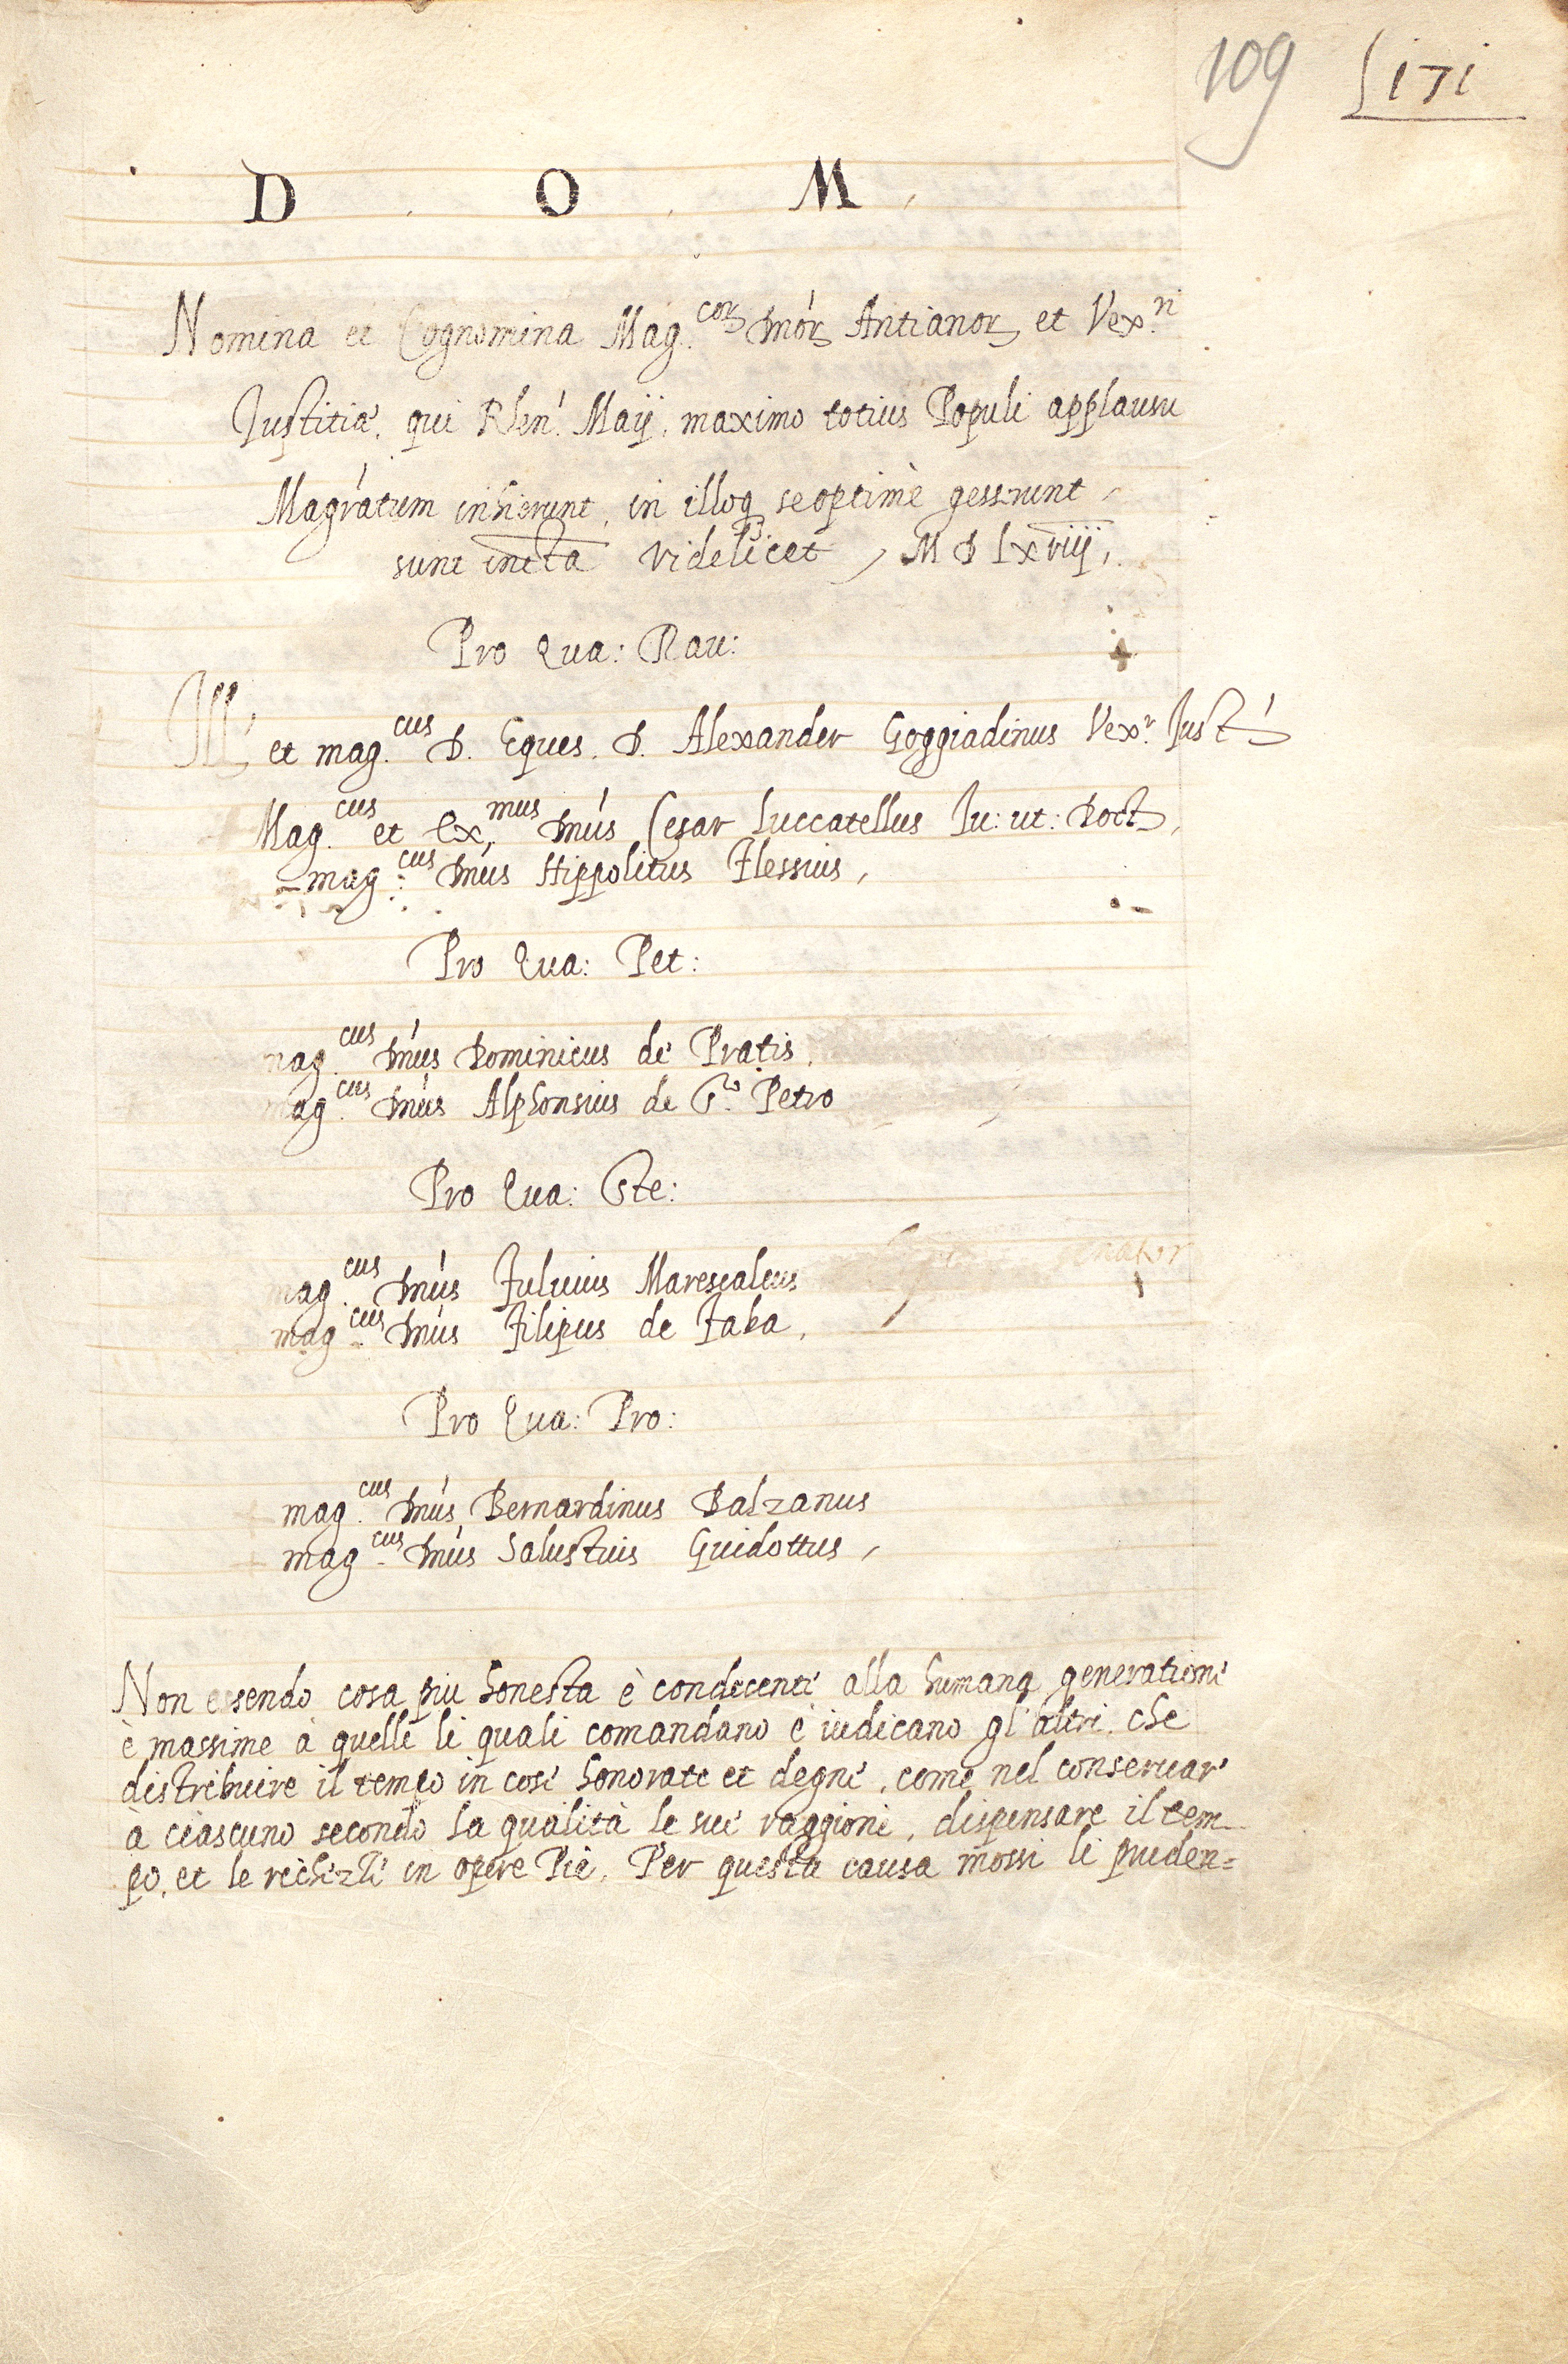 109 171
D . O . M .
Nomina et Cognomina Mag.cor Dnor Antianor et Vex.ri
Justitiæ, qui Klen. Maij, maximo totius Populi applausu
Magratum inhierunt, in illoq se optime gesserunt
sunt infta videlicet, M D Lxviij,
Pro Qua: Rau:
Ill. et mag.cus D. Eques. D. Alexander Goggiadinus Vex.r Just
Mag.cus et Ex.mus Dnus Cesar Luccatellus Iu: ut: Doct,
mag.cus Dnus Hippolitus Flessius,
Pro Qua: Pet:
mag.cus Dnus Dominicus de Pratis,
mag.cus Dnus Alphonsius de S.to Petro
Pro Qua: Ste:
mag.cus Dnus Fuluius Marescalcus
mag.cus Dnus Filipus de Faba,
Pro Qua: Pro:
mag.cus Dnus Bernardinus Balzanus
mag.cus Dnus Salustius Guidottus,
Non essendo cosa piu honesta è condecente alla humana generatione
è massime à quelle li quali comandano è iudicano gl'altri, che
distribuire il tempo in cose honorate et degne, come nel conseruare
à ciascuno secondo la qualità le sue raggioni, dispensare il tem
po, et le in opere Pie, Per questa causa mossi li pruden=